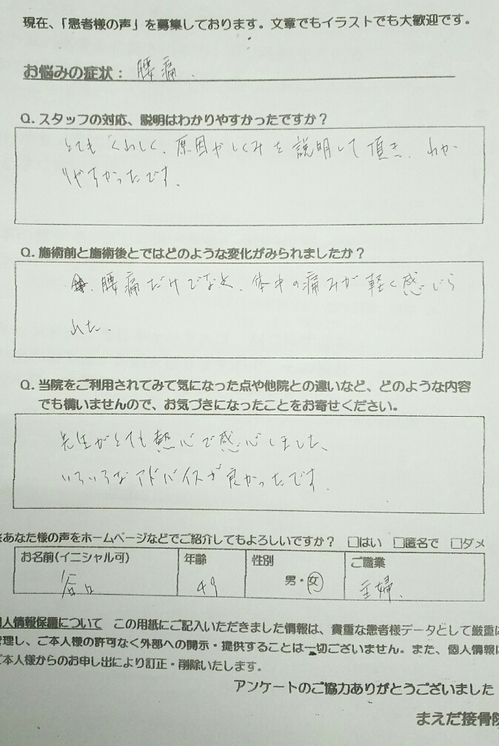 現在、「患者様の声」を募集しております。文章でもイラストでも大歓迎です。
お悩みの症状： 腰痛.
Q. スタッフの対応、説明はわかりやすかったですか？
とても くわしく、原因やしくみを説明して頂き、わか
りやすかったです。
Q. 施術前と施術後とではどのような変化がみられましたか？
腰痛だけでなく、体中の痛みが軽く感じら
れた.
Q. 当院をご利用されてみて気になった点や他院との違いなど、どのような内容
でも構いませんので、お気づきになったことをお寄せください。
先生がとても熱心で感心しました、
いろいろなアドバイスが良かったです.
あなた様の声をホームページなどでご紹介してもよろしいですか？ □はい □匿名で □ダメ
お名前(イニシャル可) 年齢 性別 ご職業
谷口 49 男・女 主婦.
個人情報保護について この用紙にご記入いただきました情報は、貴重な患者様データとして厳重に
管理し、ご本人様の許可なく外部への開示・提供することは一切ございません。また、個人情報は
ご本人様からのお申し出により訂正・削除いたします。
アンケートのご協力ありがとうございました
まえだ接骨院